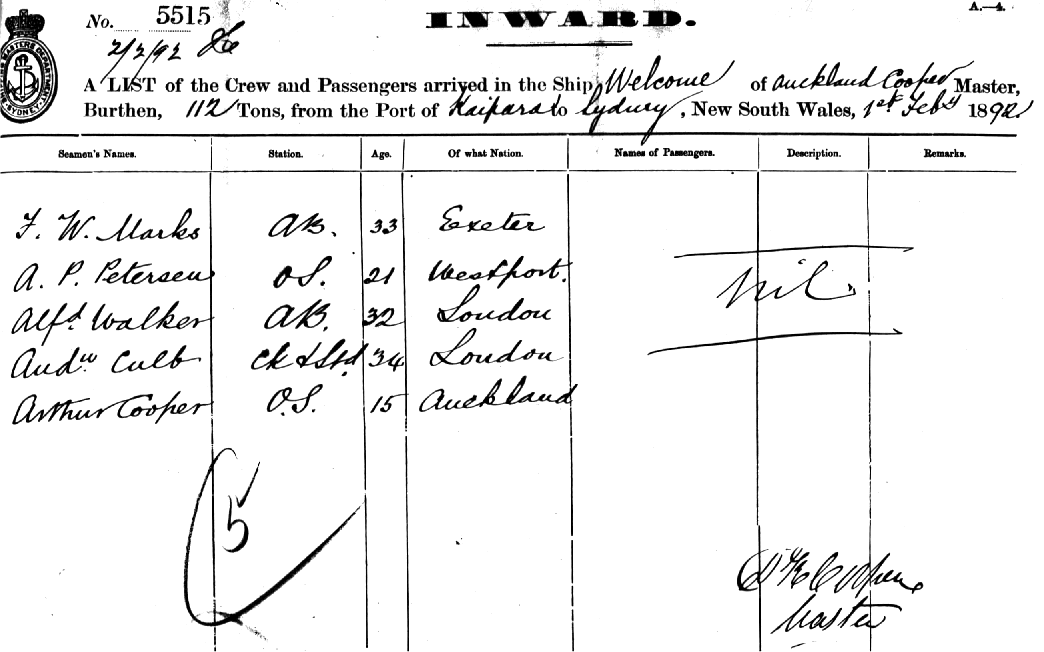 No. 5515 INWARD. A.—4.
2/2/92
A LIST of the Crew and Passengers arrived in the Ship Welcome of Auckland Cooper Master,
Burthen, 112 Tons, from the Port of Kaipara to Sydney, New South Wales, 1st Feby 1892
Seamen's Names. Station. Age. Of what Nation. Names of Passengers. Description. Remarks.
F. W. Marks AB. 33 Exeter
A. P. Petersen O.S. 21 Westport.
Nil
Alfd Walker AB. 32 London
Andw Culb Ck & Std. 34 London
Arthur Cooper O.S. 15 Auckland
5
Cooper
Master